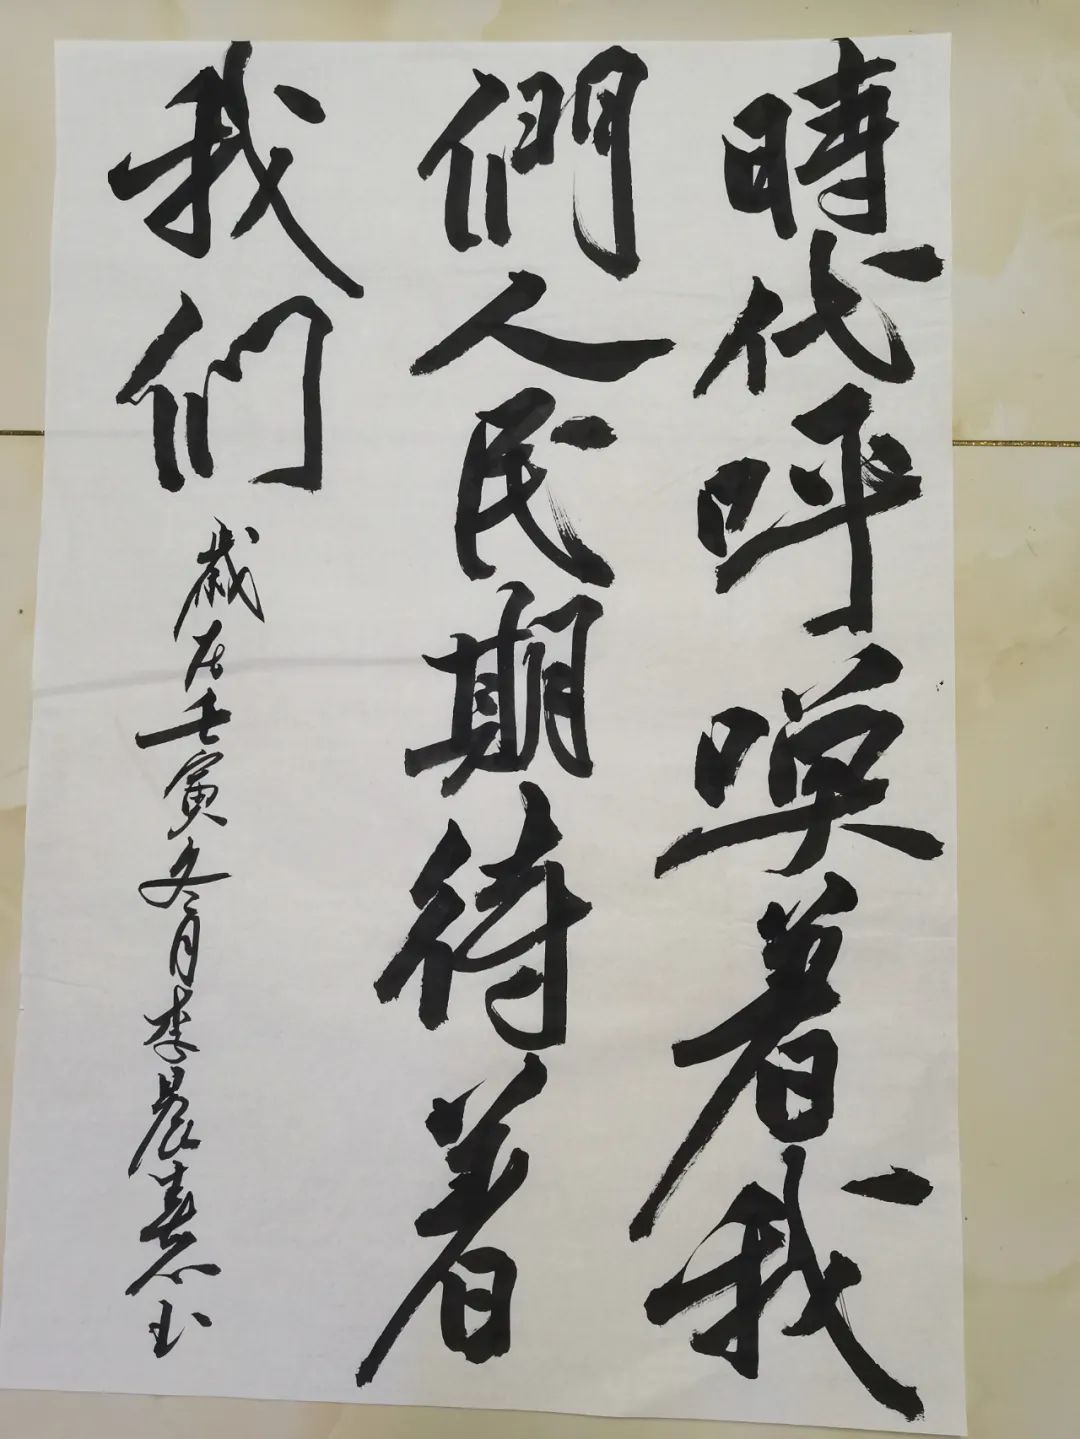 時代呼喚着我
們人民期待着
我們
歲在壬寅冬月李晨憙书